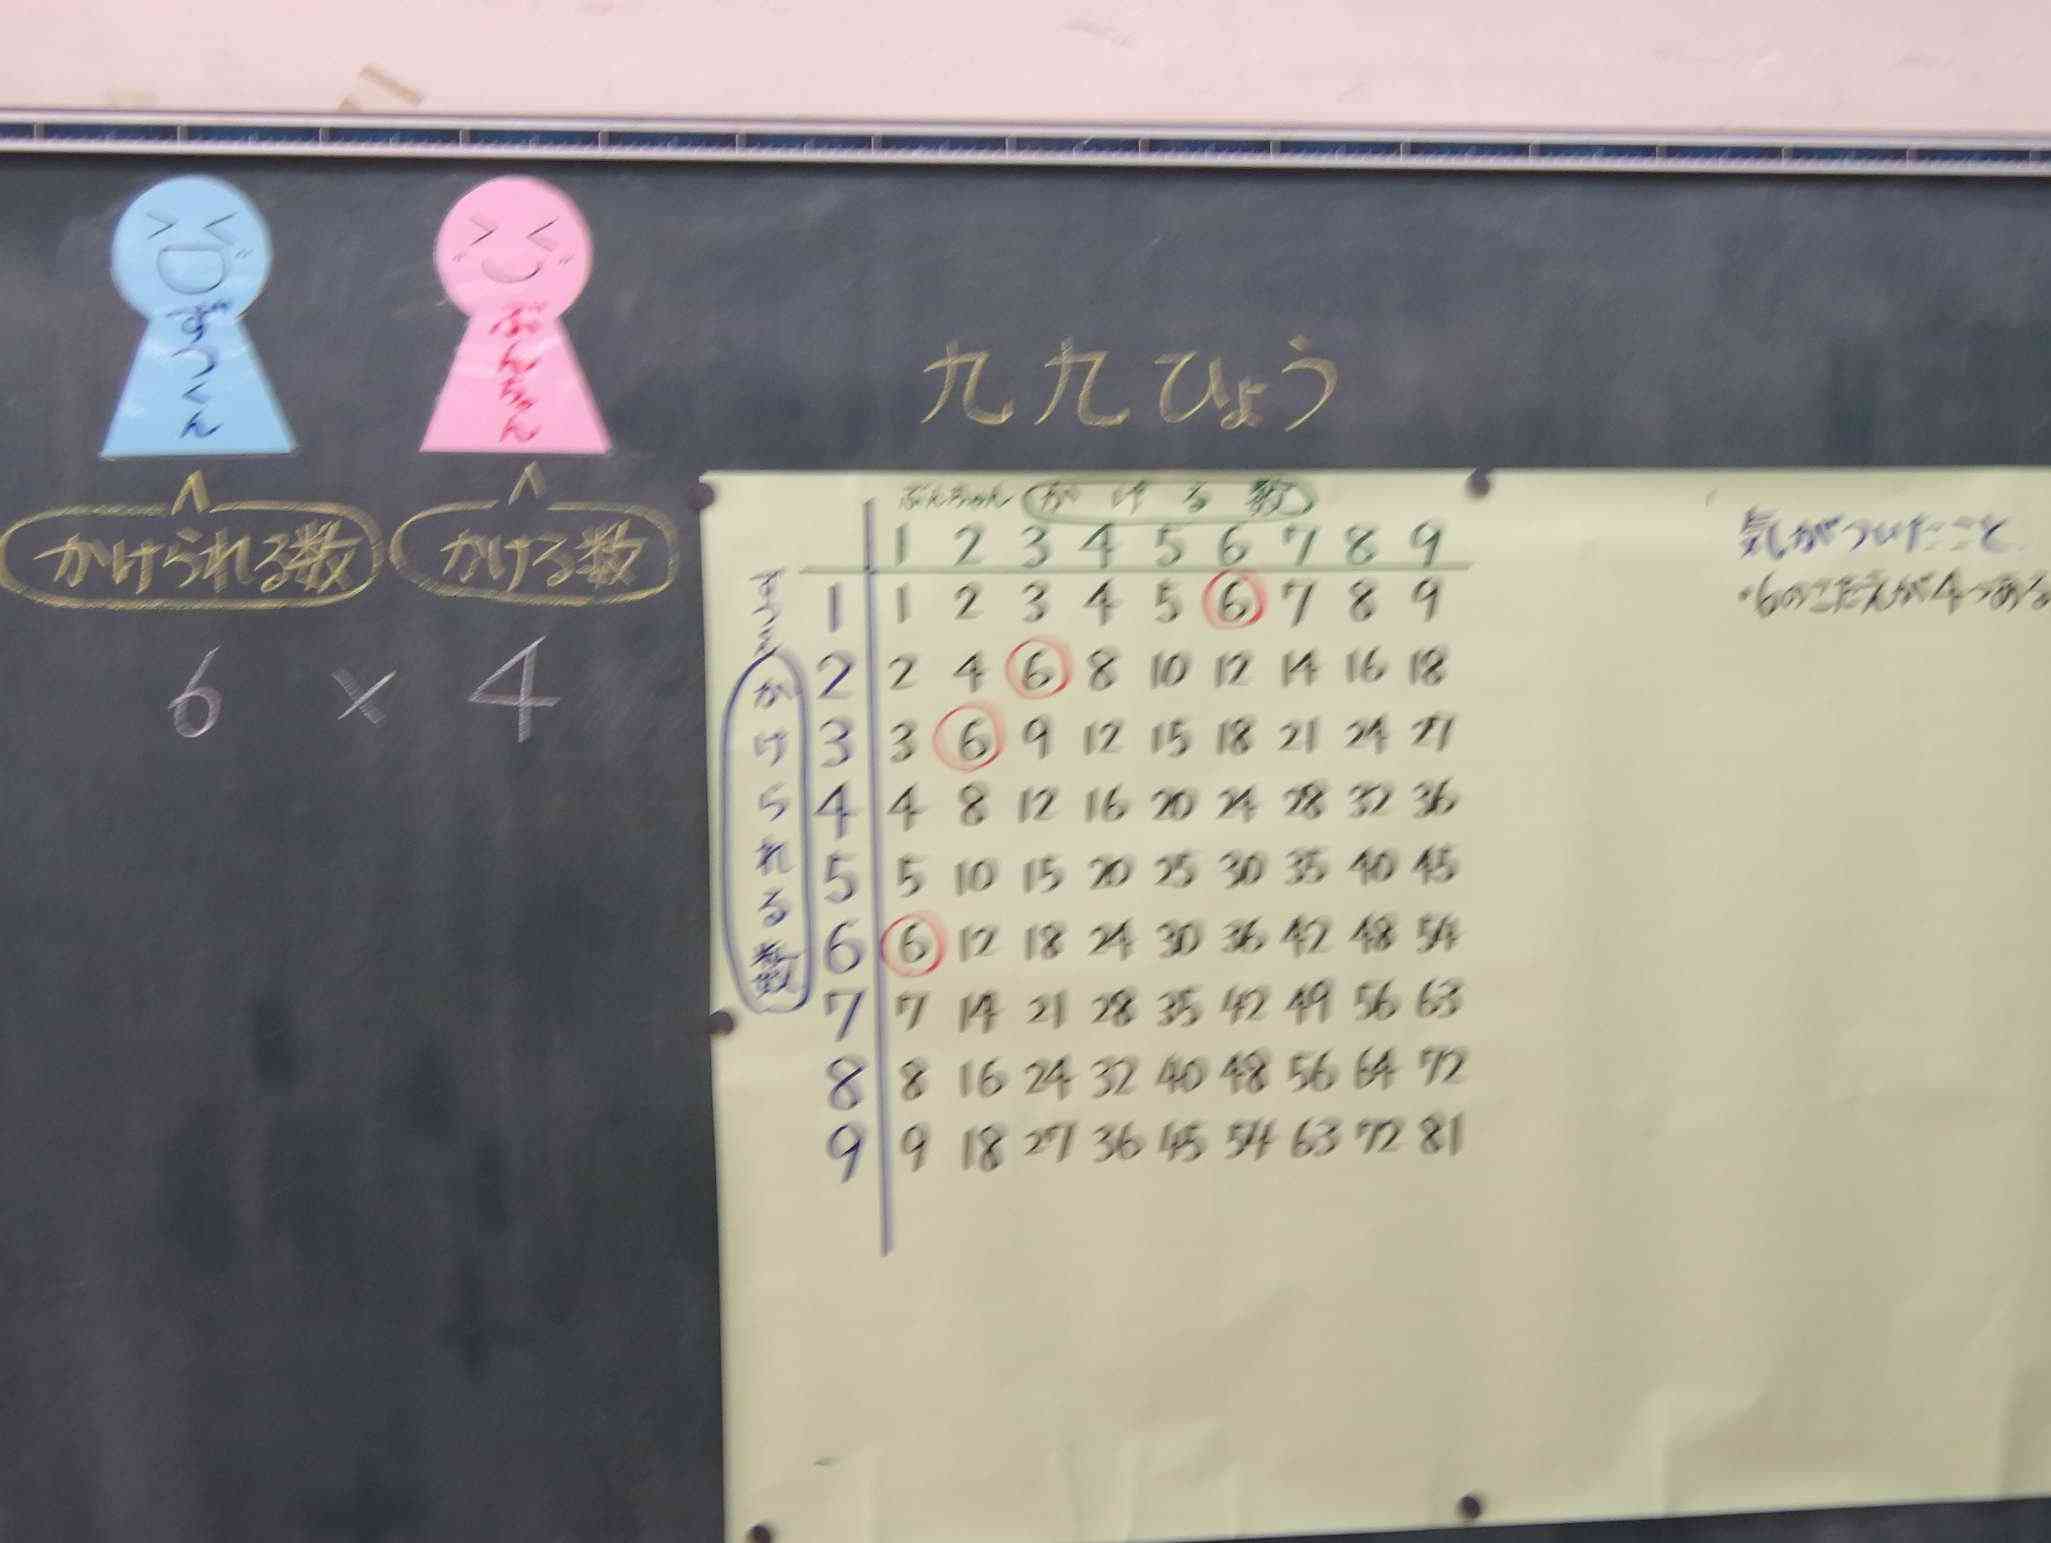 ずつくん
ぶんちゃん
かけられる数
かける数
6 × 4
九九ひょう
ぶんちゃん かける数
1 2 3 4 5 6 7 8 9
ずつくん
かけられる数
1 1 2 3 4 5 6 7 8 9
2 2 4 6 8 10 12 14 16 18
3 3 6 9 12 15 18 21 24 27
4 4 8 12 16 20 24 28 32 36
5 5 10 15 20 25 30 35 40 45
6 6 12 18 24 30 36 42 48 54
7 7 14 21 28 35 42 49 56 63
8 8 16 24 32 40 48 56 64 72
9 9 18 27 36 45 54 63 72 81
気がついたこと
・6のこたえが4つある